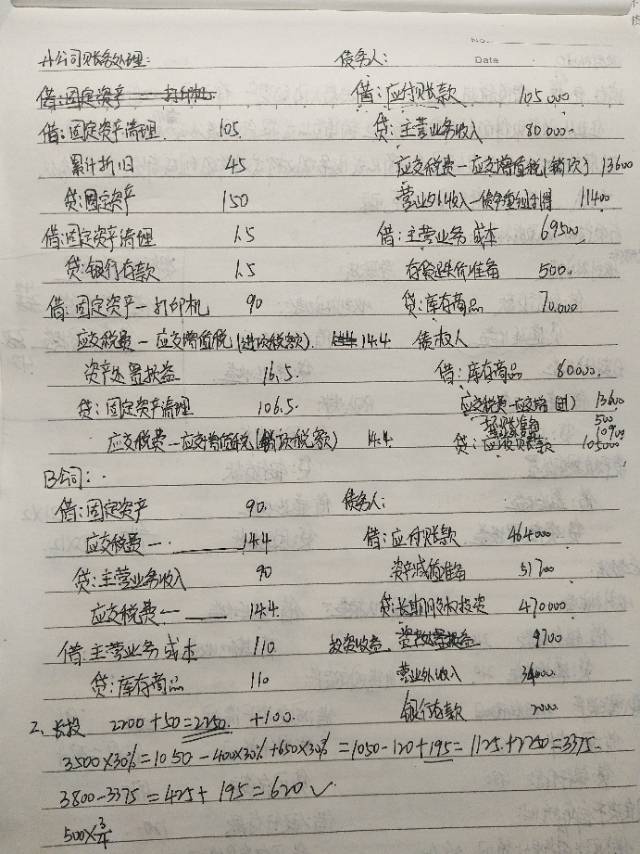 A公司账务处理：
借：固定资产 — 打印机
借：固定资产清理 105
累计折旧 45
贷：固定资产 150
借：固定资产清理 1.5
贷：银行存款 1.5
借：固定资产—打印机 90
应交税费—应交增值税（进项税额） 14.4
资产处置损益 16.5
贷：固定资产清理 106.5
应交税费—应交增值税（销项税额） 14.4
B公司：
借：固定资产 90
应交税费— 14.4
贷：主营业务收入 90
应交税费— 14.4
借：主营业务成本 110
贷：库存商品 110
No.
Date
债务人：
借：应付账款 105000
贷：主营业务收入 80000
应交税费—应交增值税（销项） 13600
营业外收入—债务重组利得 11400
借：主营业务成本 69500
存货跌价准备 500
贷：库存商品 70000
债权人
借：库存商品 80000
应交税费—应交增 13600
500
10900
贷：应收账款 105000
债务人：
借：应付账款 464000
资产减值准备 51700
贷：长期股权投资 470000
投资收益 资产处置损益 9700
营业外收入 34000
银行存款 2000
2、长投 2200+50=2250 +100.
3500×30%=1050-400×30%+650×30%=1050-120+195=1125+2250=3375.
3800-3375=425+195=620✓
500×3/4